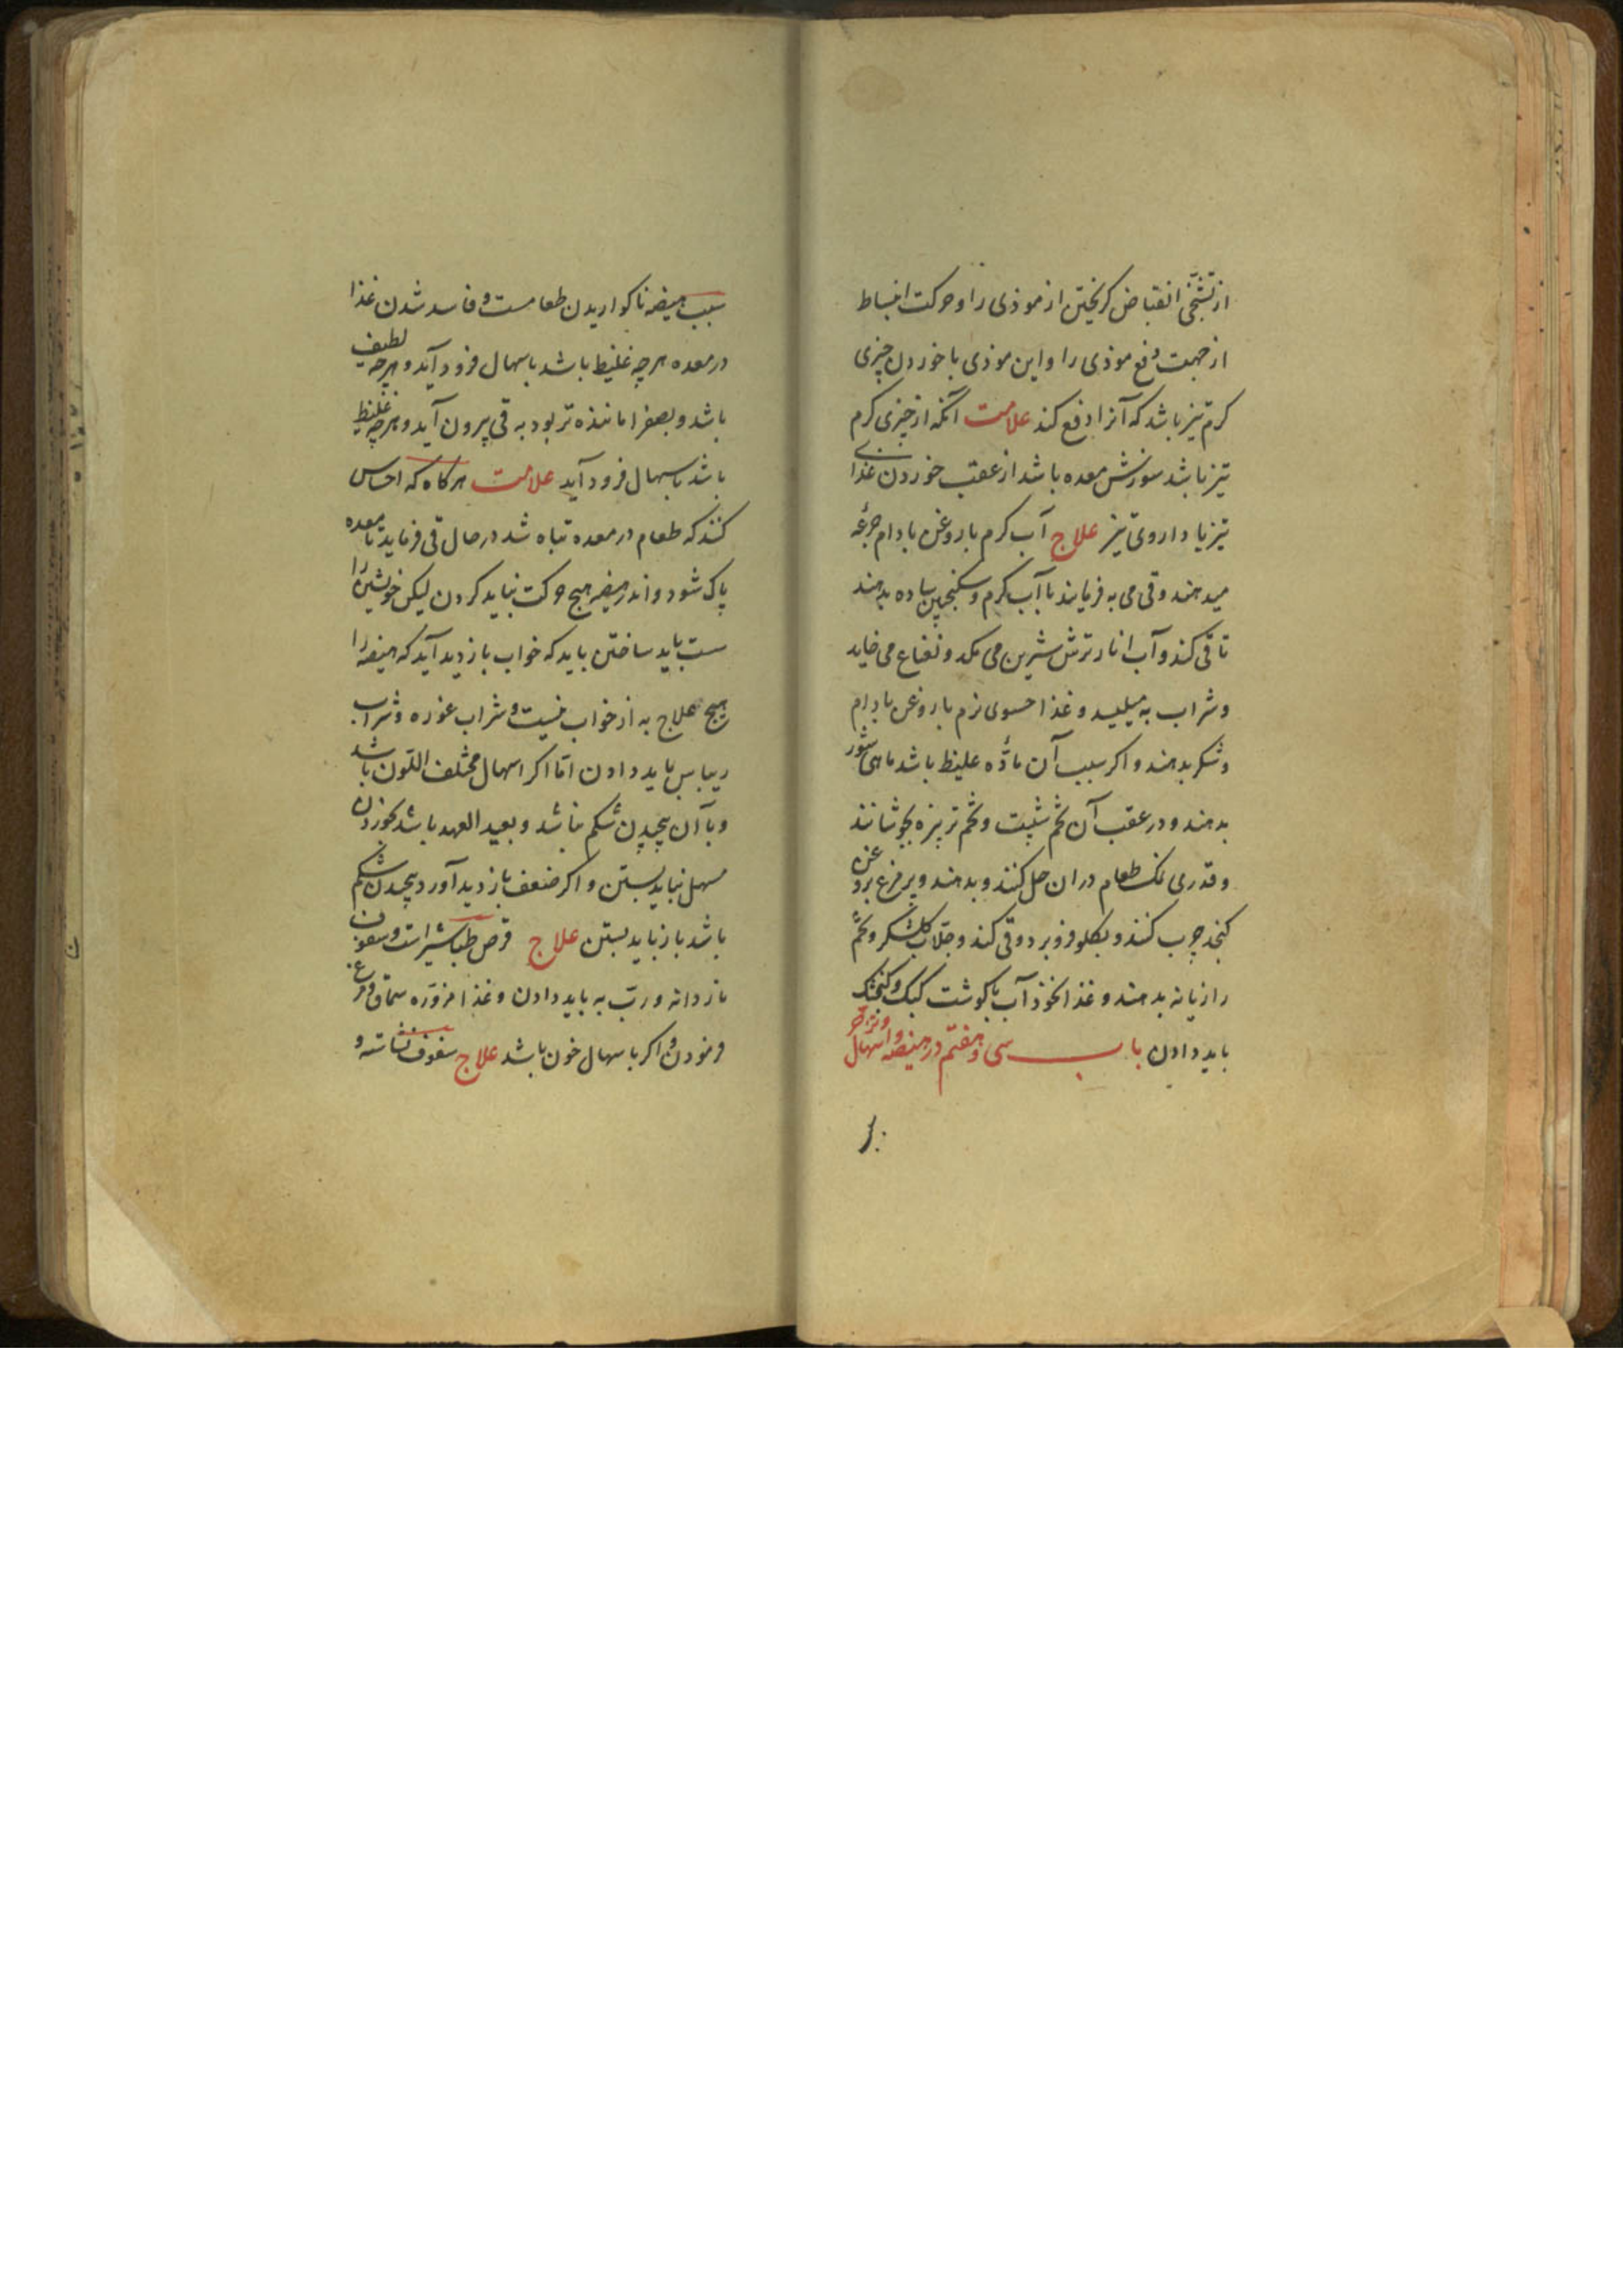 از تشنجی انقباض کریختن از موذی را و حرکت انبساط
از جهت دفع موذی را و این موذی با خوردن چیزی
کرم تیز باشد که آنرا دفع کند علامت آنکه از چیزی کرم
تیز باشد سوزش معده باشد از عقب خوردن غذای
تیز یا داروی تیز علاج آب کرم با روغن بادام جرعه
میدهند و قی می فرمایند با آب کرم و سکنجبین ساده بدهند
تا قی کند و آب انار ترش شیرین می مکد و نعناع می خاید
و شراب به میلیسد و غذا حسوی نرم با روغن بادام
و شکر بدهند و اکر سبب آن مادّه غلیظ باشد ماهی شور
بدهند و در عقب آن تخم شبت و تخم تربزه بجوشانند
و قدری نمک طعام دران حل کنند و بدهند و پر مرغ بروغن
کنجد چرب کنند و بکلو فرو برد و قی کند و جلّاب کلشکر و تخم
رازیانه بدهند و غذا نخود آب با کوشت کبک و کنجشک
باید دادن باب سی و هفتم در هیضه و اسهال
سبب هیضه ناکواریدن طعامست و فاسد شدن غذا
در معده هرچه غلیظ باشد باسهال فرود آید و هرچه لطیف
باشد و بصفرا ماننده تر بود به قی بیرون آید و هرچه غلیظ
باشد باسهال فرود آید علامت هرکاه که احساس
کنند که طعام در معده تباه شد در حال قی فرماید تا معده
پاک شود و اندر هیضه هیچ حرکت نباید کردن لیکن خویشتن را
ست باید ساختن باید که خواب بازدید آید که هیضه را
هیچ علاج به از خواب نیست و شراب غوره و شراب
ریباس باید دادن امّا اکر اسهال مختلف اللّون باشد
و با آن پیچیدن شکم نباشد و بعید العهد باشد بخوردن
مسهل نباید بستن و اکر ضعف بازدید آورد پیچیدن شکم
باشد باز نباید بستن علاج قرص طباشیر است و سفوف
ناردانه و ربّ به باید دادن و غذا مزوّره سماق و مرغ
فرمودن و اکر باسهال خون باشد علاج سفوف نشاسته و